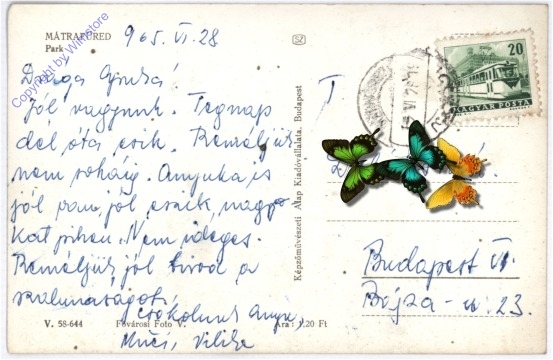 MÁTRAFÜRED
Park
965. VI. 28
Copyright by Winstore
Drága Gyuszi!
Jól vagyunk. Tegnap
dél óta esik. Reméljük
nem soháig. Anyuka is
jól van, jól eszik, nagyo
kat pihen. Nem ideges.
Reméljük jól bírod a
szalmaságot!
Csókolunk Anyu,
Muci,
V. 58-644
Fővárosi Foto V.
Ára: 1,20 Ft
Képzőművészeti Alap Kiadóvállalata, Budapest
SZ
20
MAGYAR POSTA
Budapest VI
u. 23.